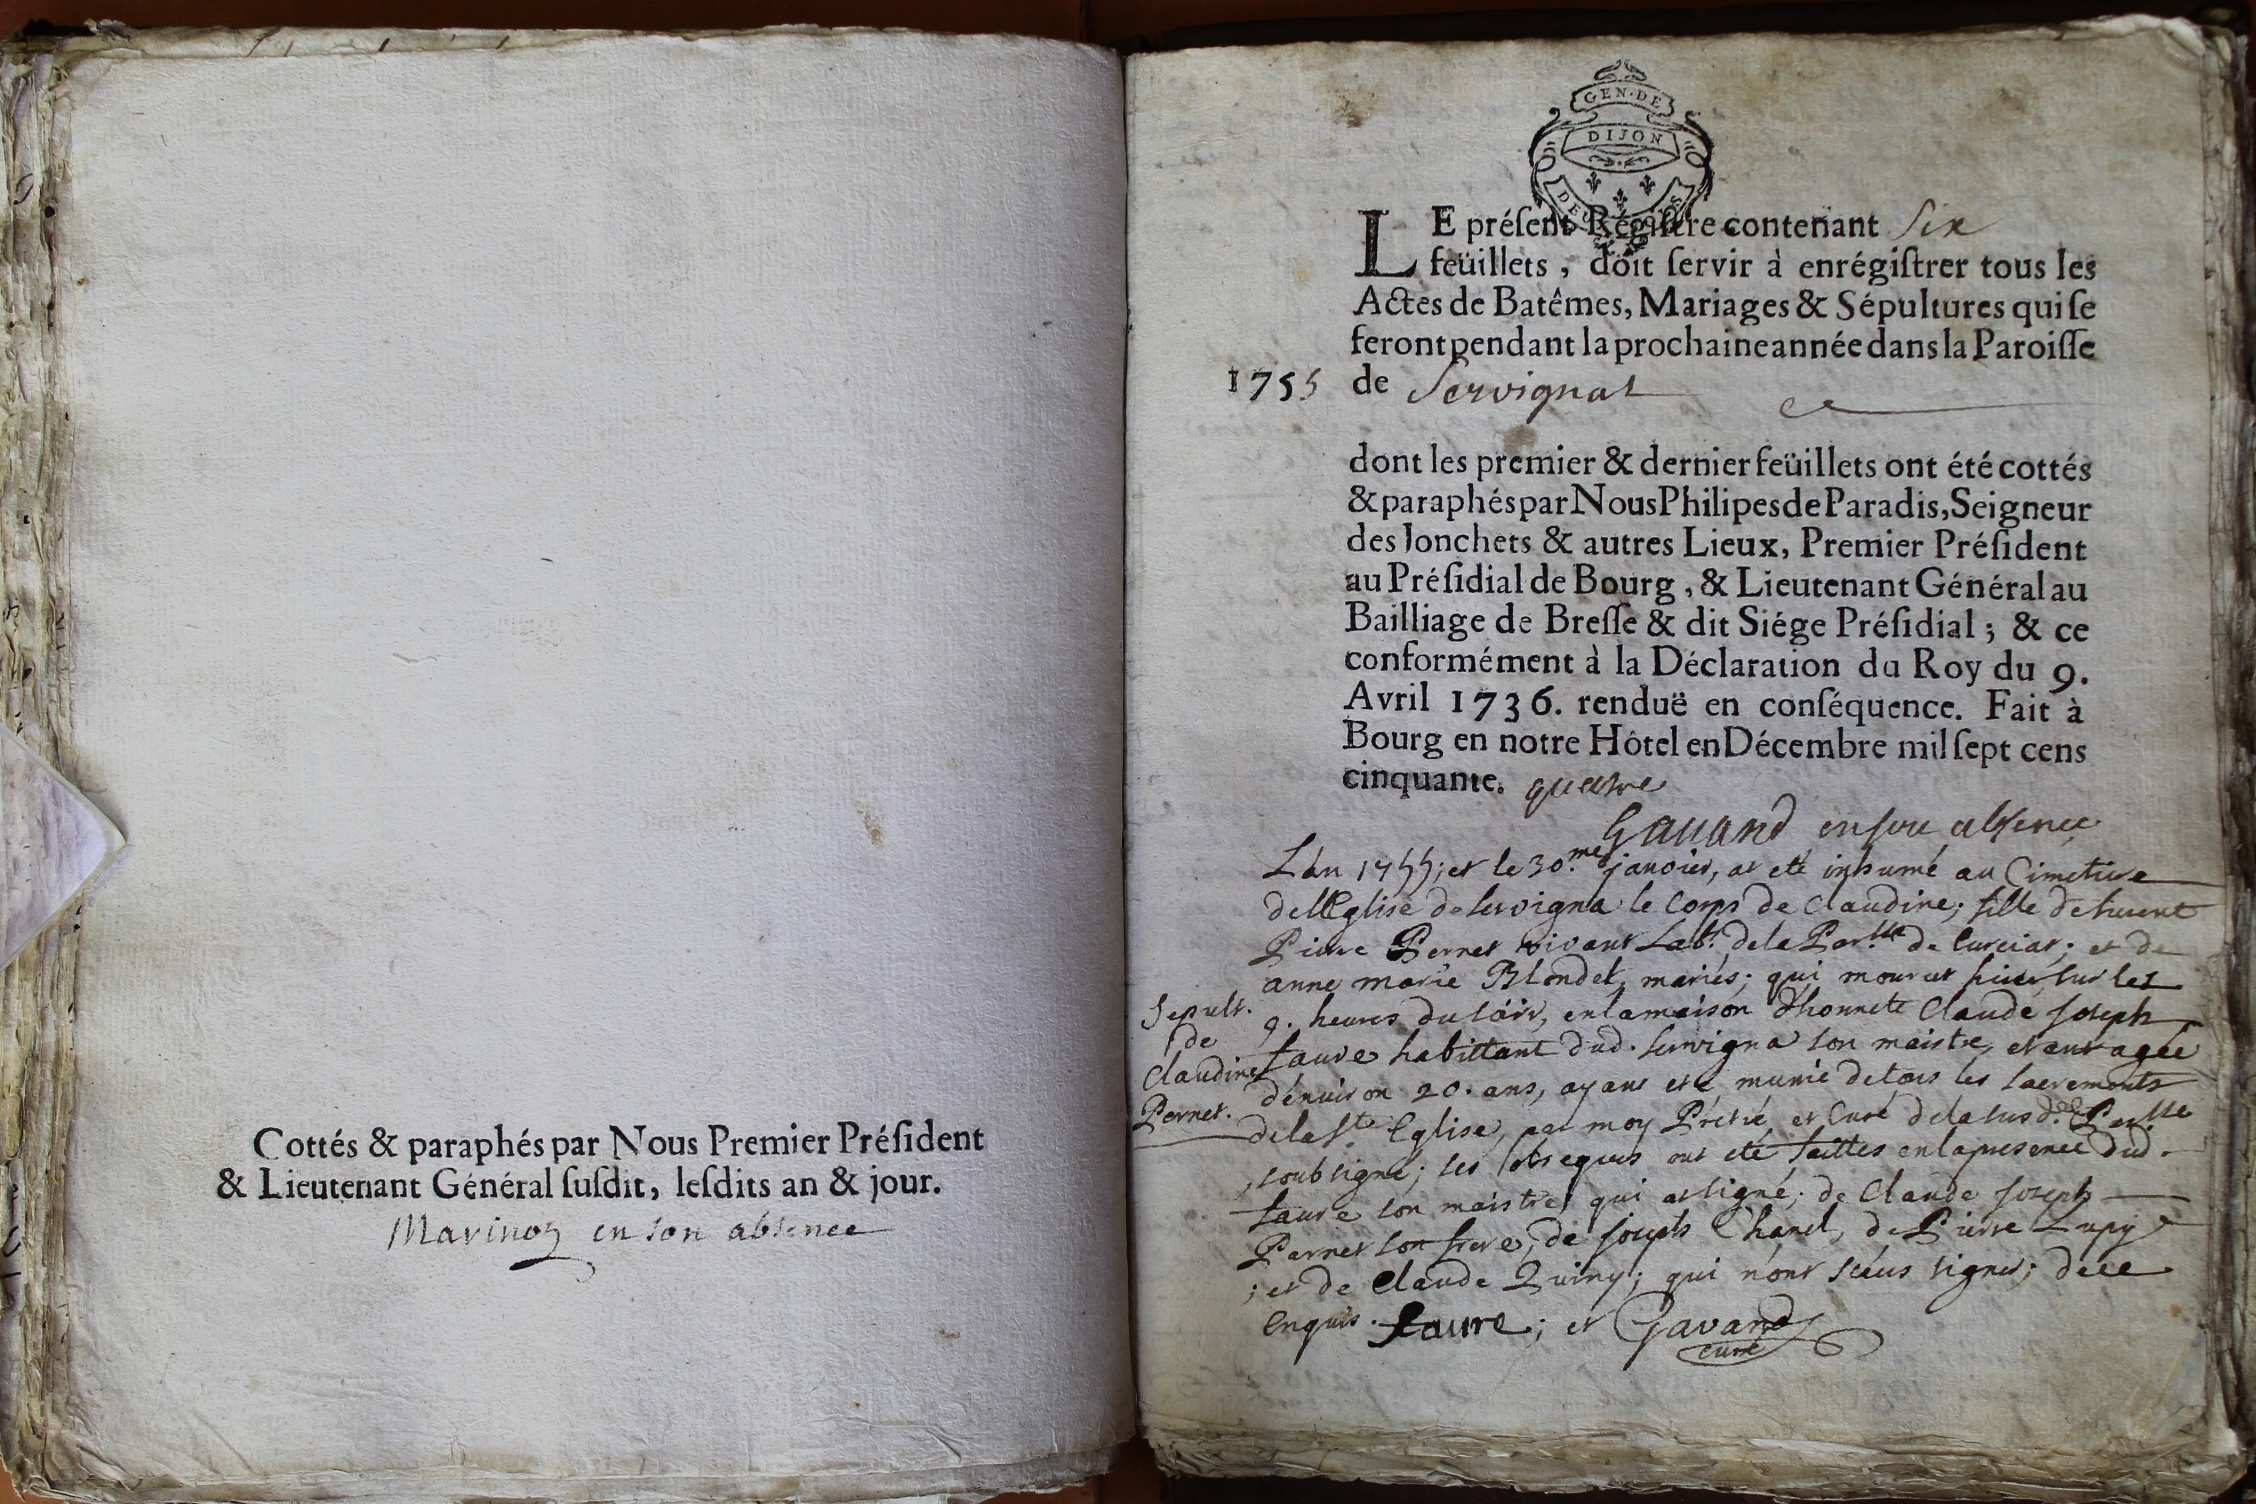 Cottés & paraphés par Nous Premier Préſident
& Lieutenant Général ſuſdit, leſdits an & jour.
Marinoz en son absence
GEN·DE
DIJON
LE préſent Régiſtre contenant Six
feüillets, doit ſervir à enrégiſtrer tous les
Actes de Batêmes, Mariages & Sépultures qui ſe
feront pendant la prochaine année dans la Paroiſſe
1755 de Servignat
dont les premier & dernier feüillets ont été cottés
& paraphés par Nous Philipes de Paradis, Seigneur
des Jonchets & autres Lieux, Premier Préſident
au Préſidial de Bourg, & Lieutenant Général au
Bailliage de Breſſe & dit Siége Préſidial; & ce
conformément à la Déclaration du Roy du 9.
Avril 1736. renduë en conſéquence. Fait à
Bourg en notre Hôtel en Décembre mil ſept cens
cinquante. quatre
Gauand en son absence
L'an 1755; et le 30.me janvier, at eté inhumé au Cimetiere
de l'Eglise de Servigna le Corps de Claudine; fille de
Pierre Pernet vivant Lab.r de la Par.sse de Curciat; et de
anne marie Blondet, mariés; qui mourut hier sur les
9. heures du soir, en la maison d'honnete Claude Joseph
faure habittant dud. Servigna son maistre, agée
d'environ 20. ans, ayant eté munie de tous les sacrements
de la S.te Eglise, par moy Prétre, et Curé de la susd. Par.sse
soubsigné; ses obseques ont eté faittes en la presence dud.
faure son maistre qui at signé; de Claude Joseph
Pernet son frere, de joseph Chanel, de Pierre Lupy
; et de Claude Quiny; qui n'ont sceus signer; de ce
enquis. faure; et Gavand
curé
Sepult.
de
Claudine
Pernet.